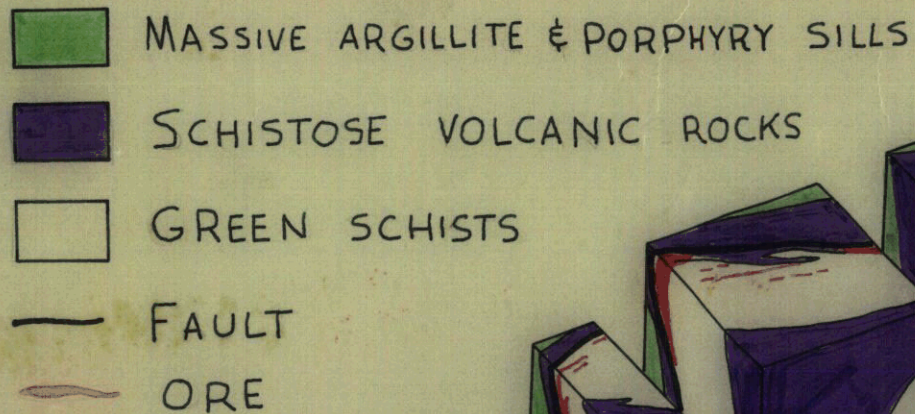 MASSIVE ARGILLITE & PORPHYRY SILLS
SCHISTOSE VOLCANIC ROCKS
GREEN SCHISTS
FAULT
ORE